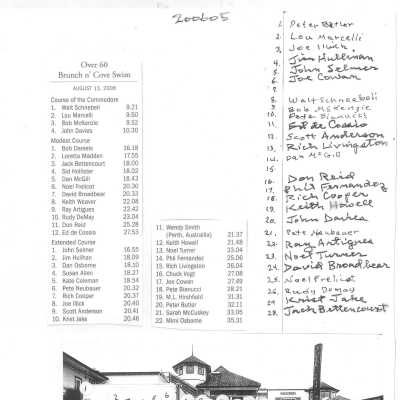 200605
Over 60
Brunch n' Cove Swim
AUGUST 13, 2006
Course of the Commodore
1. Walt Schnebeli 9.21
2. Lou Marcelli 9.50
3. Bob McKenzie 9.52
4. John Davies 10.30
Modest Course
1. Bob Daniels 16.18
2. Loretta Madden 17.55
3. Jack Bettencourt 18.00
4. Sid Hollister 18.02
5. Dan McGill 18.43
6. Noel Frelicot 20.30
7. David Broadbear 20.33
8. Keith Weaver 22.08
9. Ray Artigues 22.42
10. Rudy DeMay 23.04
11. Don Reid 25.28
12. Ed de Cossio 27.53
Extended Course
1. John Selmer 16.55
2. Jim Hulihan 18.09
3. Dan Osborne 18.10
4. Susan Allen 18.27
5. Kate Coleman 18.54
6. Pete Neubauer 20.32
7. Rich Cooper 20.37
8. Joe Illick 20.40
9. Scott Anderson 20.41
10. Krist Jake 20.46
11. Wendy Smith
(Perth, Australia) 21.37
12. Keith Howell 21.48
13. Noel Turner 23.04
14. Phil Fernandez 25.06
15. Rich Livingston 26.04
16. Chuck Vogt 27.08
17. Joe Cowan 27.49
18. Pete Bianucci 28.21
19. M.L. Hirshfield 31.31
20. Peter Butler 32.11
21. Sarah McCuskey 33.05
22. Mimi Osborne 35.31
1. Peter Butler
2. Lou Marcelli
3. Joe Illick
4. Jim Hulihan
5. John Selmer
6. Joe Cowan
7.
8. Walt Schnebeli
9. Bob McKenzie
10. Pete Bianucci
11. Ed de Cossio
12. Scott Anderson
13. Rich Livingston
14. Dan McGill
15.
16. Don Reid
17. Phil Fernandez
18. Rich Cooper
19. Keith Howell
20. John Davies
21. Pete Neubauer
22. Ray Artigues
23. Noel Turner
24. David Broadbear
25. Noel Frelicot
26. Rudy DeMay
27. Krist Jake
28. Jack Bettencourt